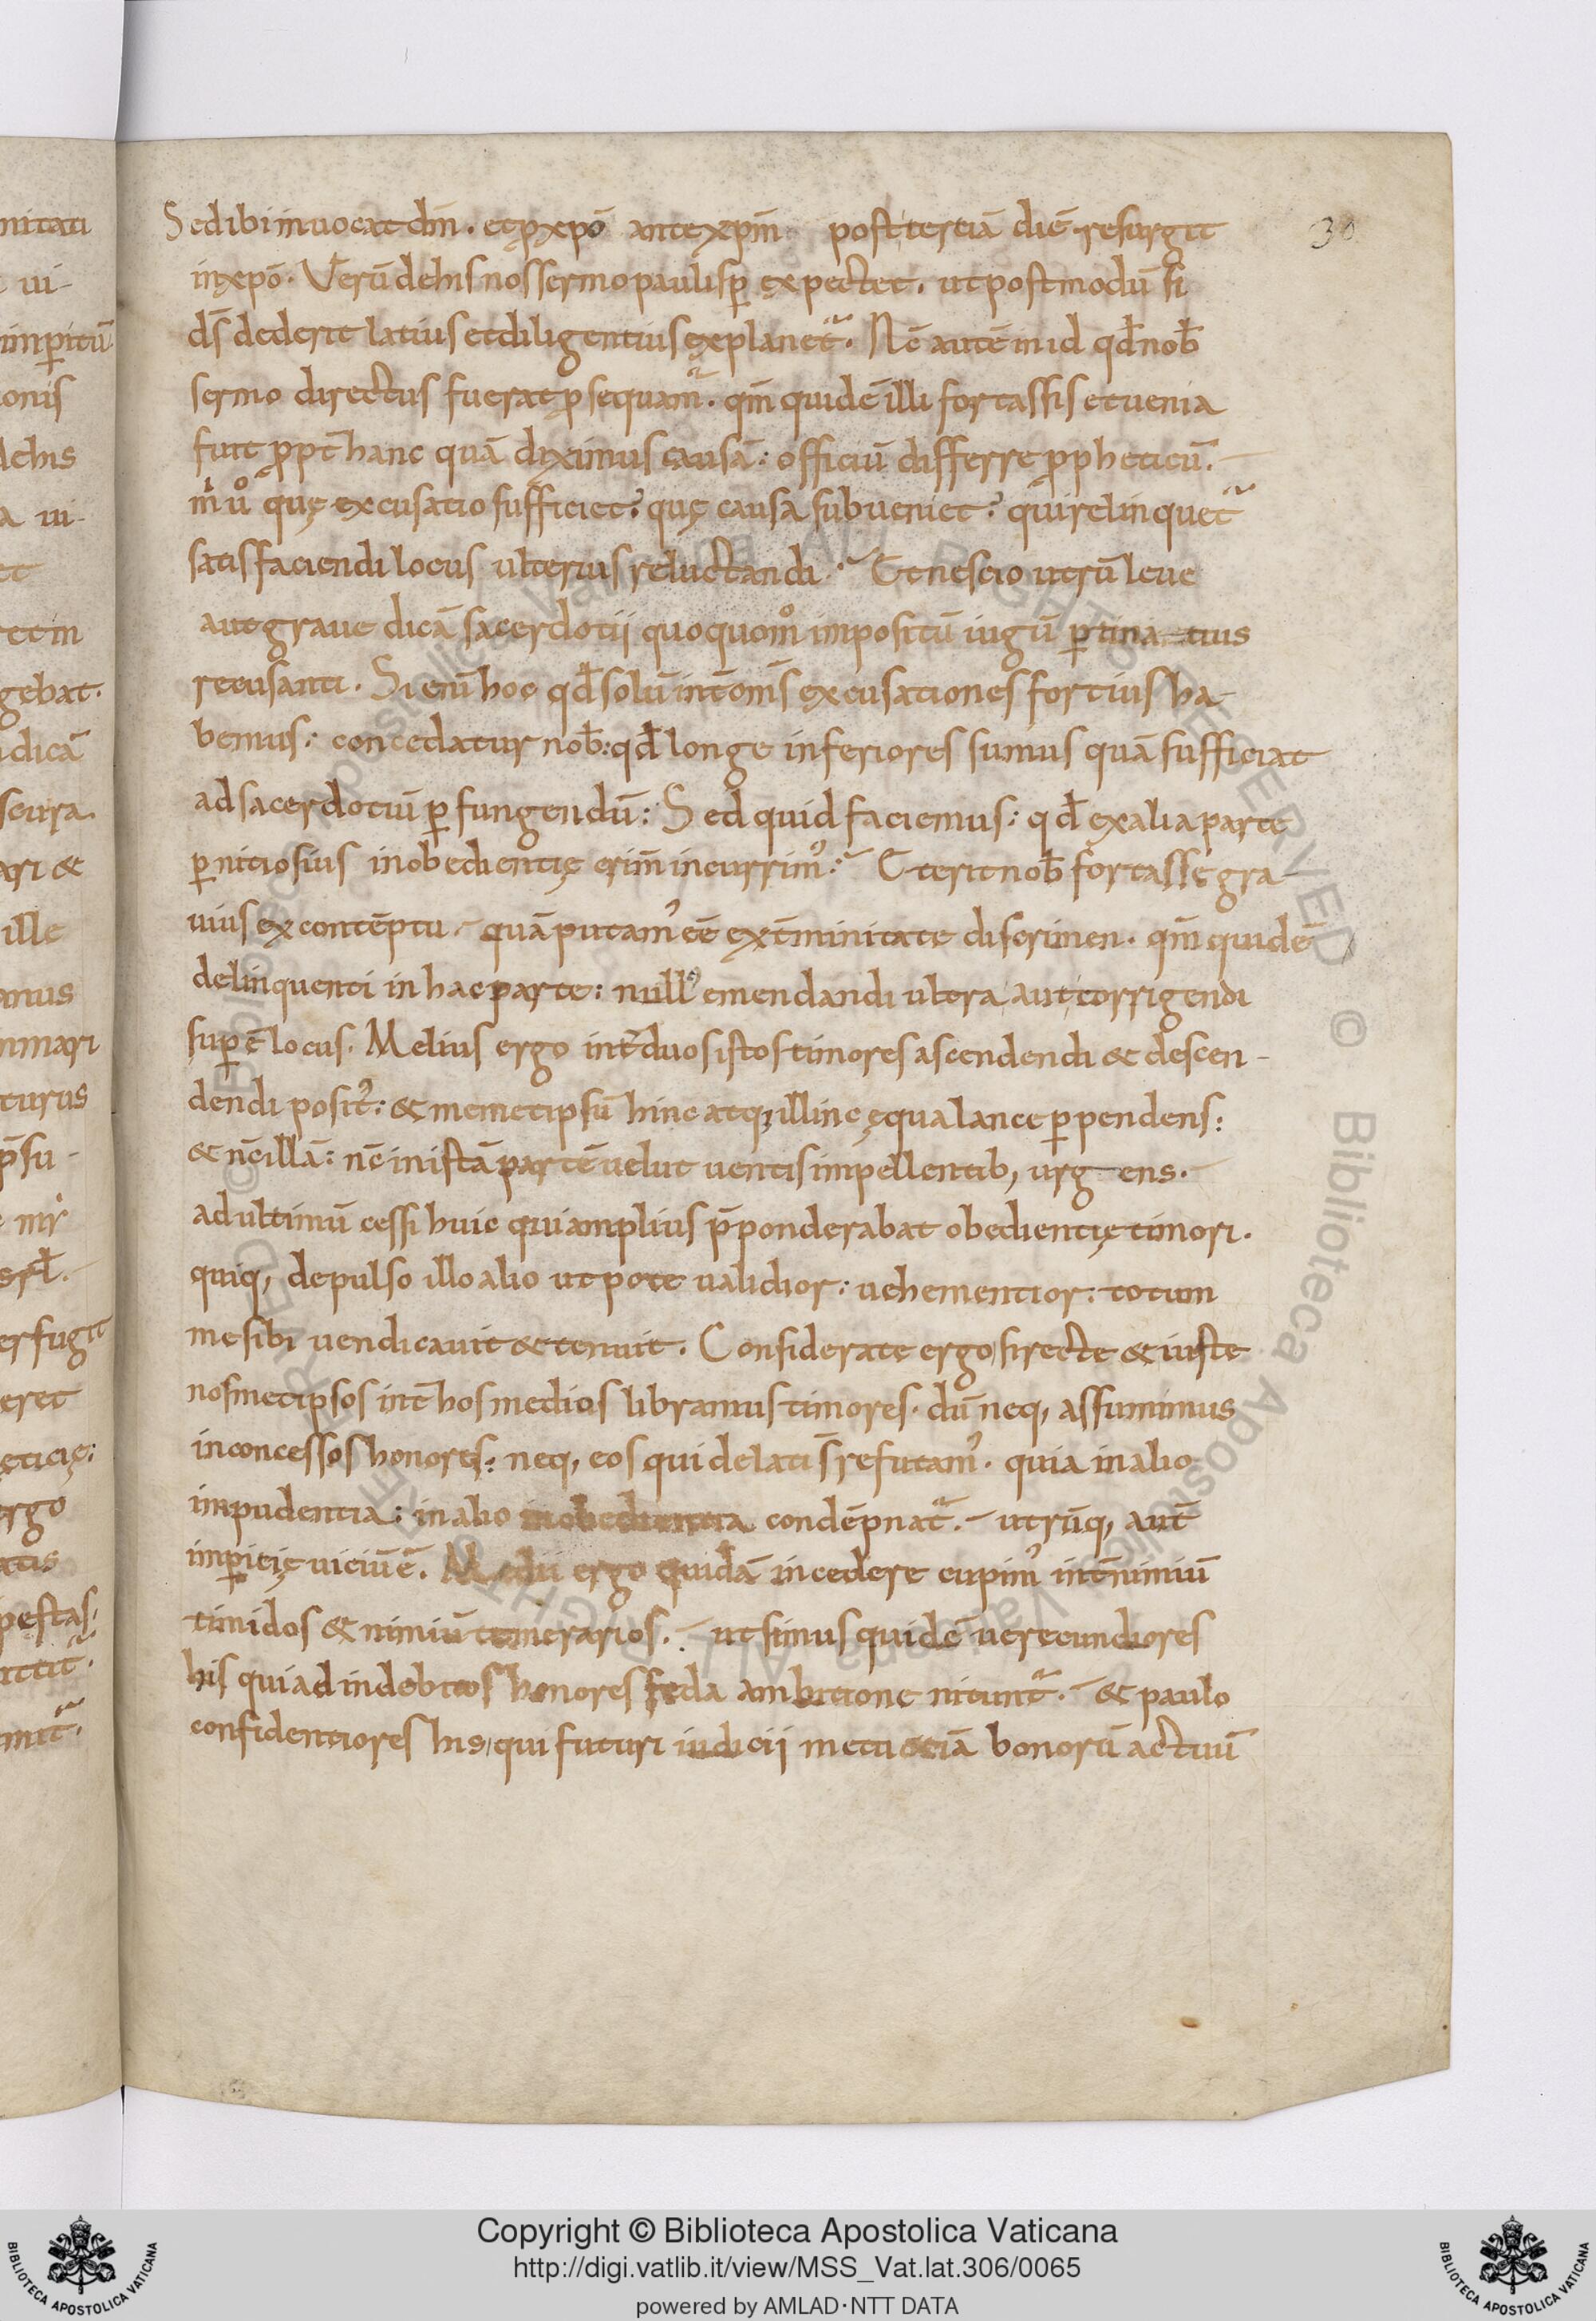 Sed ibi inuocat dm̄. et p xpō ante xpm̄ post tertiā diē resurgit
in xpō. Verū de his nos sermo paulisꝑ expectet. ut postmodū si
ds̄ dederit latius et diligentius explanet᷑. Nc̄ autē in id qd̄ nob̄
sermo directus fuerat ꝓsequam᷑. qm̄ quidē illi fortassis et uenia
fuit ꝓpt̄ hanc quā diximus causā: officiū differre ꝓpheticū.
m̄ uͦ quę excusatio sufficiet? quę causa subueniet? qui relinquet᷑
satisfaciendi locus ulterius reluctandi? Et nescio utrū leue
aut graue dicā sacerdotii quoquomͦ impositū iugū ꝑtinatius
recusanti. Si eni hoc qd̄ solū int̄ om̄s excusationes fortius ha-
bemus: concedatur nob̄: qd̄ longe inferiores sumus quā sufficiat
ad sacerdotiū ꝑfungendū: Sed quid faciemus: qd̄ ex alia parte
ꝑnitiosius inobedientię crim̄ incurrimꝰ? Et erit nob̄ fortasse gra-
uius ex contēptu. quā putamꝰ eē ext̄minitate discrimen. qm̄ quidē
delinquenti in hac parte: nullꝰ emendandi ultra aut corrigendi
suꝑē locus. Melius ergo int̄ duos istos timores ascendendi & descen-
dendi positꝰ: & memetipsū hinc atq; illinc ęqua lance ꝑpendens:
& nc̄ illā: nc̄ in istā partē uelut uentis impellentib; urgens.
ad ultimū cessi huic qui amplius p̄ponderabat obedientię timori.
quiq; depulso illo alio utpote ualidior: uehementior: totum
me sibi uendicauit & tenuit. Considerate ergo si recte & iuste
nosmetipsos int̄ hos medios libramus timores. dū neq; assumimus
inconcessos honores: neq; eos qui delati s̄ refutamꝰ. quia in alio
impudentia: in alio inobedientia condēpnat᷑. utrūq; aut̄
imꝑitię uiciū ē. Medii ergo quidā incedere cupimꝰ int̄ nimiū
timidos & nimiū temerarios. ut simus quidē uerecundiores
his qui ad indebitos honores feda ambitione nitunt᷑. & paulo
confidentiores his qui futuri iudicii metu etiā bonorū actuū
30
Copyright © Biblioteca Apostolica Vaticana
http://digi.vatlib.it/view/MSS_Vat.lat.306/0065
powered by AMLAD·NTT DATA